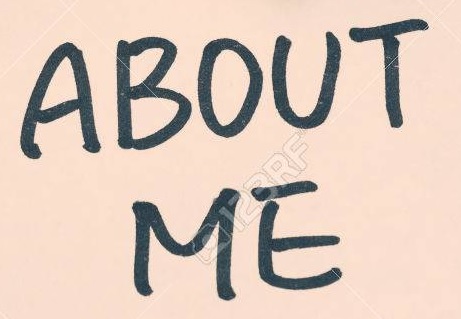 ABOUT
ME
123RF